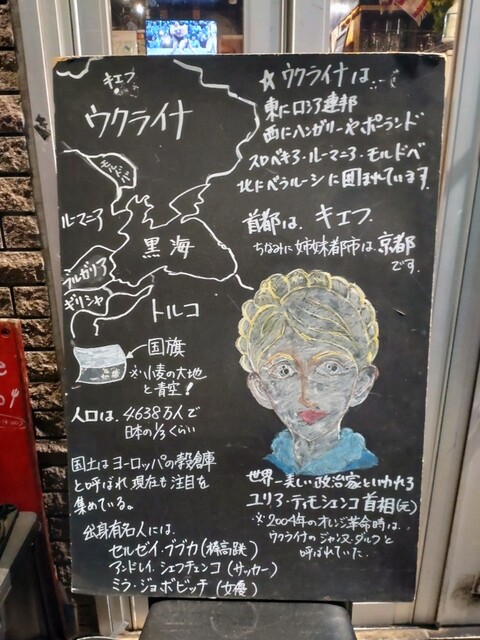 キエフ
ウクライナ
ルーマニア
黒海
ブルガリア
ギリシャ
トルコ
国旗
※小麦の大地
と青空!
人口は、4638万人で
日本の1/3くらい
国土はヨーロッパの穀倉庫
と呼ばれ現在も注目を
集めている。
出身有名人には、
セルゼイ・ブブカ(棒高跳)
アンドレイ・シェフチェンコ(サッカー)
ミラ・ジョボビッチ(女優)
☆ウクライナは…
東にロシア連邦
西にハンガリーやポーランド
スロベキア・ルーマニア・モルドベ
北にベラルーシに囲まれています。
首都は、キエフ.
ちなみに姉妹都市は、京都
です.
世界一美しい政治家といわれる
ユリア・ティモシェンコ首相(元)
※2004年のオレンジ革命時は、
ウクライナのジャンヌ・ダルクと
呼ばれていた.